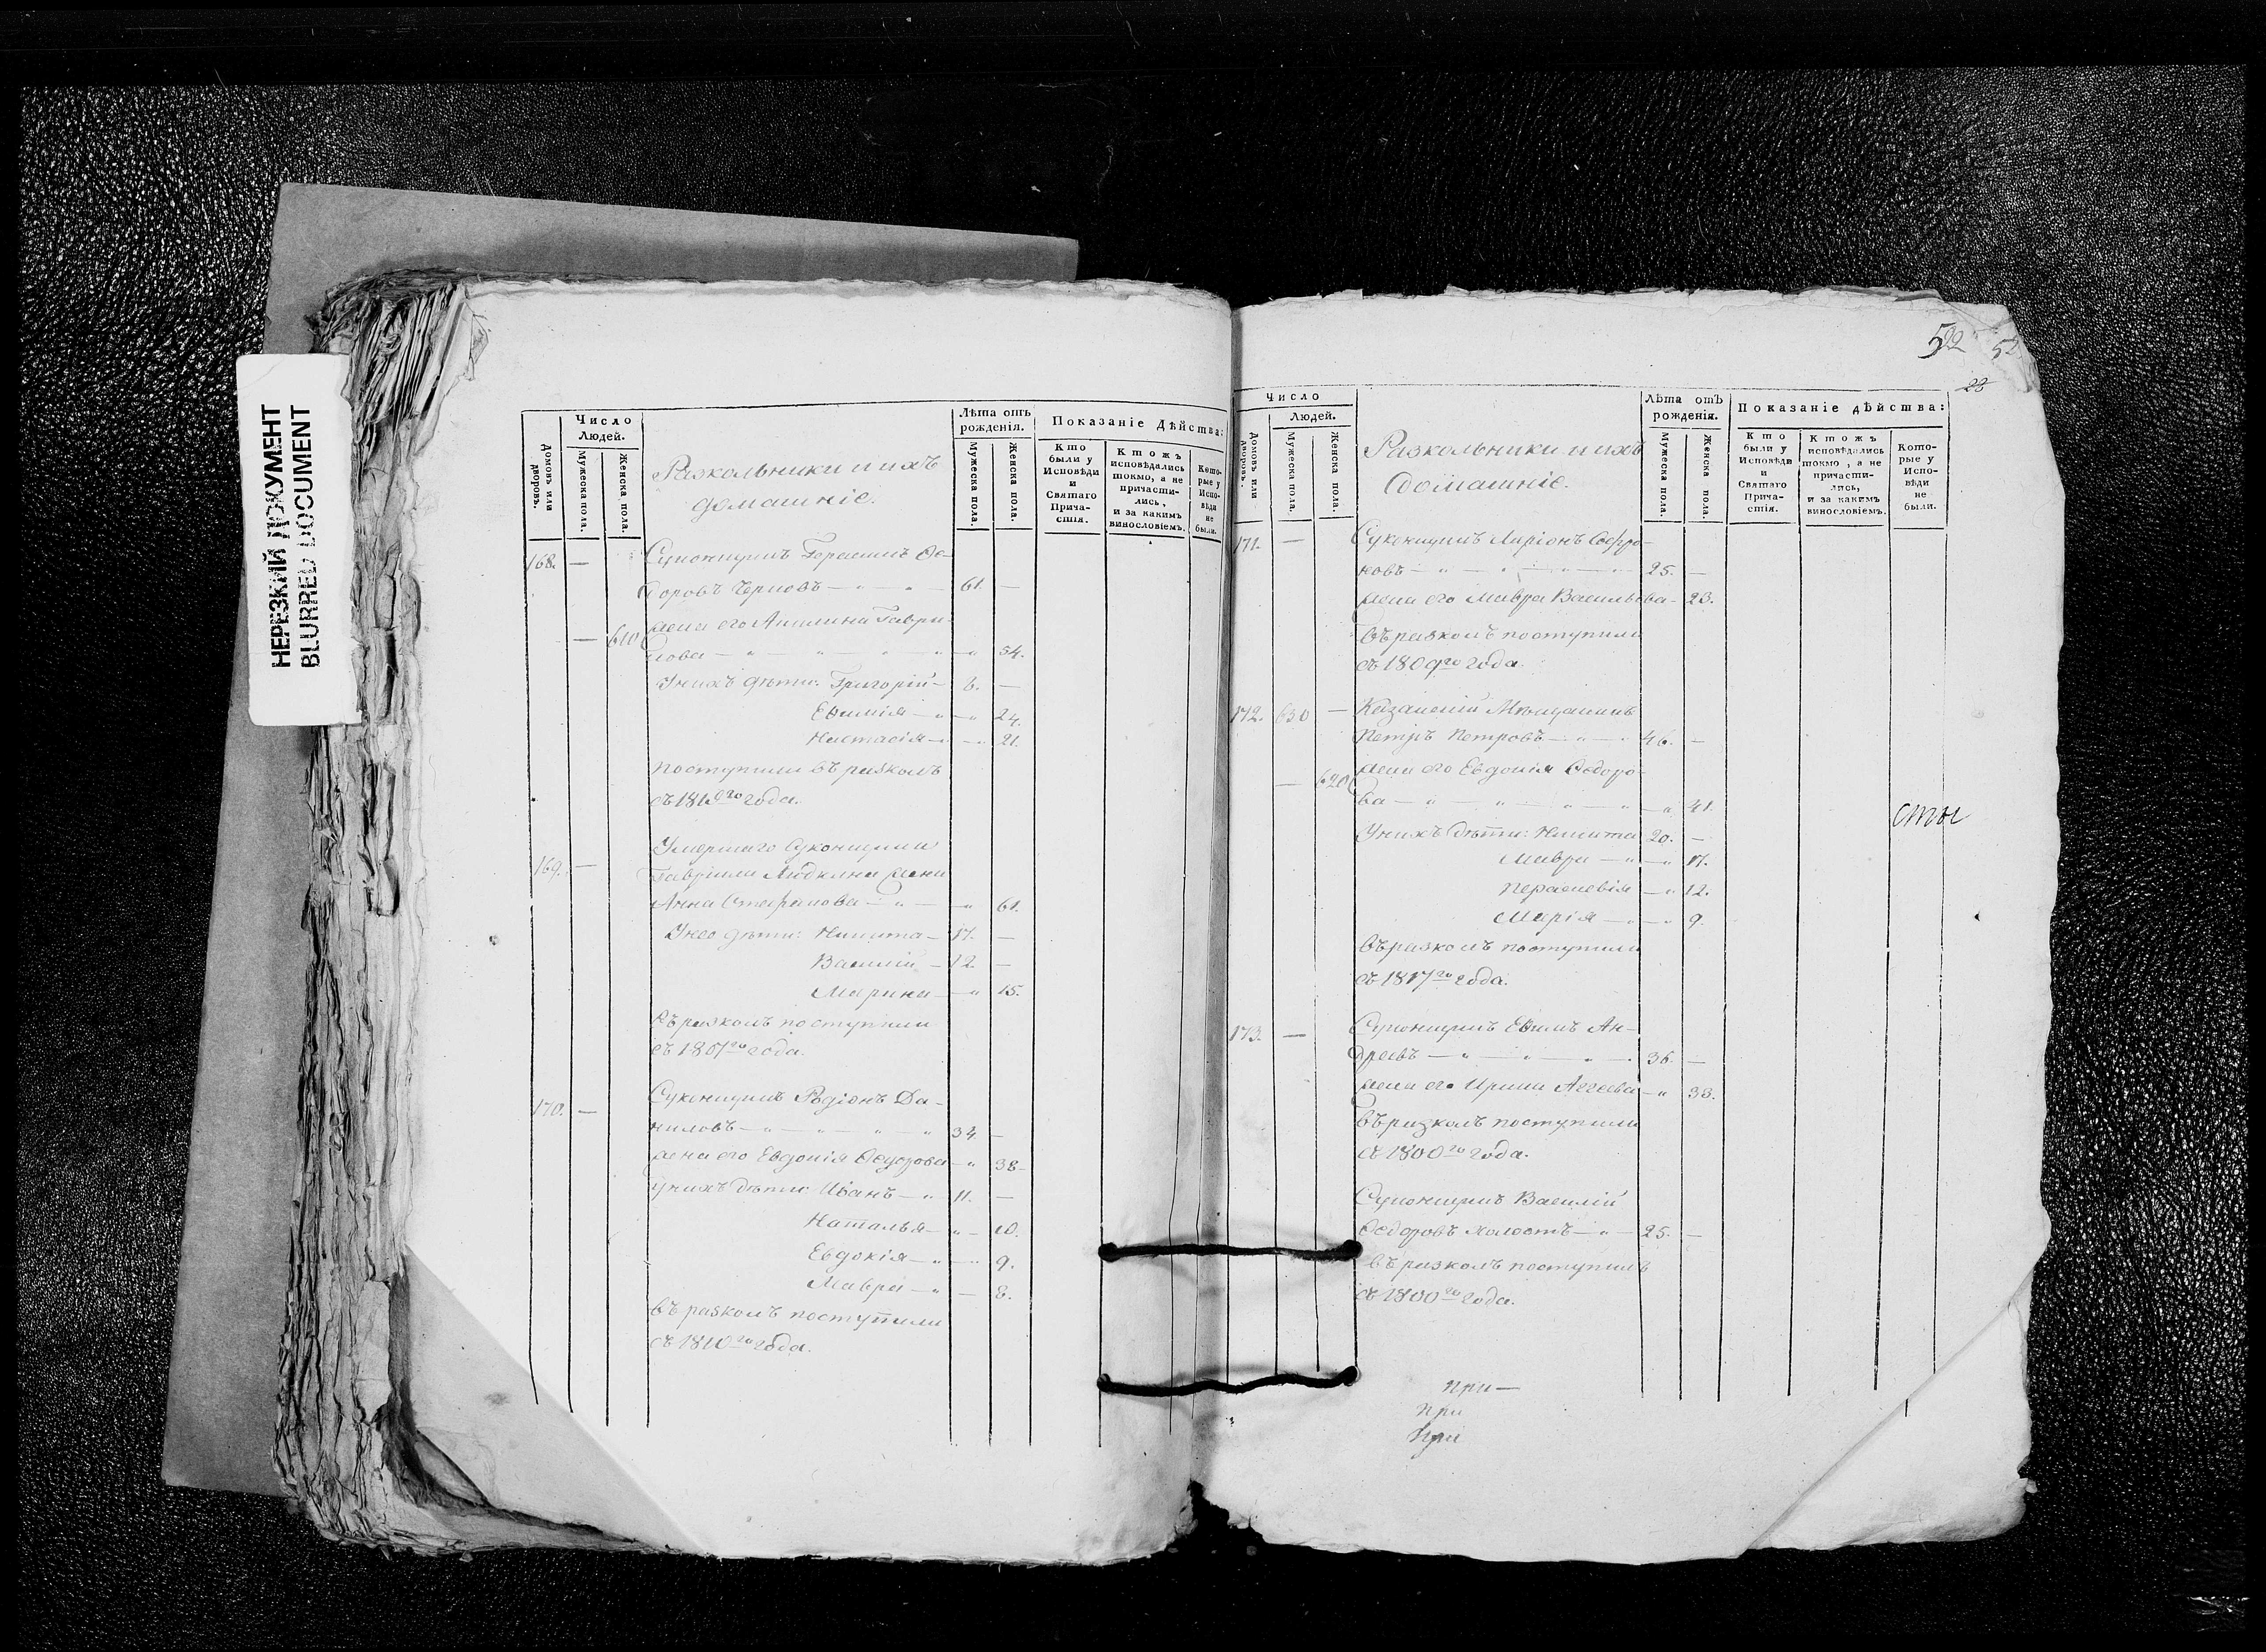 НЕРЕЗКИЙ ДОКУМЕНТ
BLURRED DOCUMENT
Домовъ или дворовъ.
Число Людей.
Мужеска пола.
Женска пола.
Разкольники и ихъ
домашніе.
Лѣта отъ рожденія.
Мужеска пола.
Женска пола.
Показаніе Дѣйства:
Кто были у Исповѣди и Святаго Причастія.
Ктожъ исповѣдались токмо, а не причастились, и за какимъ винословіемъ.
Которые у Исповѣди не были.
168. — Суконщикъ Герасимъ Ѳе-
доровъ Черновъ — 61. —
— 610 жена его Акилина Гаври-
лова — 54.
У нихъ дѣти: Григорій — 8. —
Евѳимія — 24.
Настасія — 21.
поступили въ разколъ
года.
169. — Умершаго Суконщика
Гавріила жена
Анна Стефанова — 61.
У нео дѣти: Никита — 17. —
Василій — 12. —
Марина — 15.
Въ разколъ поступили
съ 1807го года.
170. — Суконщикъ Родіонъ Да-
ниловъ — 34. —
жена его Евдокія Ѳедорова — 38 —
У нихъ дѣти: Иванъ — 11. —
Наталья — 10.
Евдокія — 9.
Мавра — 8.
въ разколъ поступили
съ 1810го года.
522 52
22
Число
Домовъ или дворовъ.
Людей.
Мужеска пола.
Женска пола.
Разкольники и ихъ
домашніе.
Лѣта отъ рожденія.
Мужеска пола.
Женска пола.
Показаніе дѣйства:
Кто были у Исповѣди и Святаго Причастія.
Ктожъ исповѣдались токмо, а не причастились, и за какимъ винословіемъ.
Которые у Исповѣди не были.
171. — Суконщикъ Ларіонъ Софро-
новъ — 25. —
жена его Мавра Васильева — 23.
Въ разколъ поступили
съ 1809го года.
172. 630 — Казанскій Мѣщанинъ
Петръ Петровъ — 46. —
— 620 жена его Евдокія Ѳедоро-
ва — 41.
У нихъ дѣти: Никита 20. —
Мавра — 17.
Параскевія — 12.
Марія — 9.
Въ разколъ поступили
съ 1817го года.
сты
173. — Суконщикъ Евѳимъ Ан-
дреевъ — 36. —
жена его Ирина Агеева — 33.
въ разколъ поступили
съ 1800го года.
Суконщикъ Василій
Ѳедоровъ холостъ — 25. —
въ разколъ поступилъ
съ 1800го года.
при —
при
при